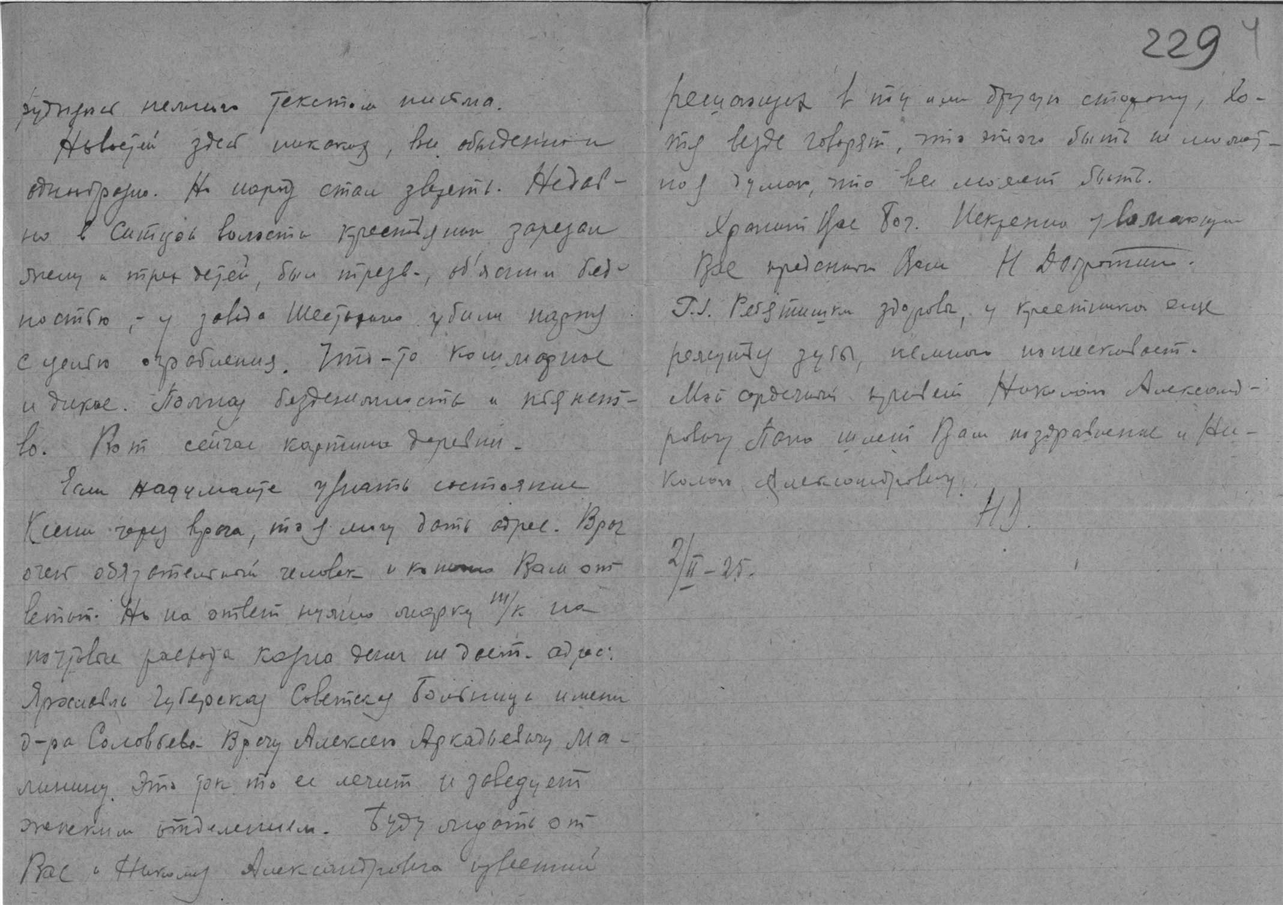 229 4
немного текстом письма.
Новостей здесь никаких, все обыденно и
однообразно. Но народ стал звереть. Недав-
но в Ситцов волости крестьянин зарезал
жену и трех детей, был трезв, об'яснил бед-
ностью, - у завода убили парня
с целью ограбления. Что-то кошмарное
и дикое. Полная безденежность и пьянст-
во. Вот сейчас картина деревни.
Если надумаете узнать состояние
Ксении через врача, то я могу дать адрес. Врач
очень обязательный человек и конечно Вам от
ветит. Но на ответ нужно марку на
почтовые расхода казна денег не дает. адрес:
Ярославль Губерская Советская Больница имени
д-ра Соловьева Врачу Алексею Аркадьевичу Ма-
линину. Это тот кто ее лечит и заведует
женским отделением. Буду ждать от
Вас и Николая Александровича известий
решающих в ту или другую сторону, Хо-
тя везде говорят, что этого быть не может,
но я думаю, что все может быть.
Храни Вас Бог. Искренно уважающая
Вас преданная Вам Н
P.S. Ребятишки здоровы, у крестника еще
режутся зубы, немного попискивает.
Мой сердечный привет Николаю Александ-
ровичу Папа шлет Вам поздравление и Ни-
колаю Александровичу.
НД.
2/II - 25.